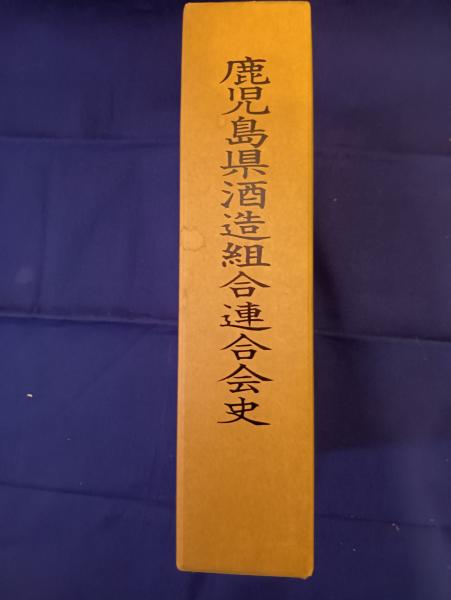 鹿児島県酒造組合連合会史